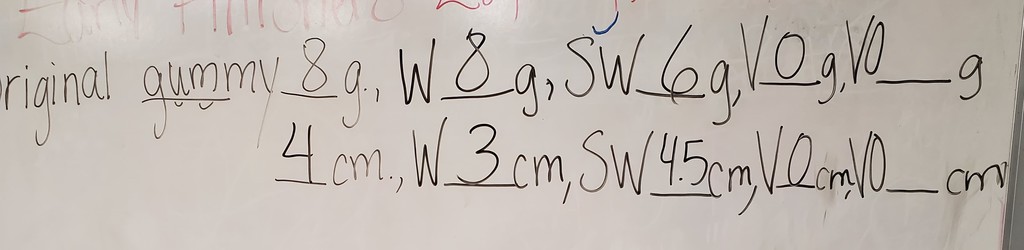 riginal gummy 8 g., W 8 g, SW 6 g, V 0 g, VO___ g
4 cm., W 3 cm, SW 4.5 cm, V 0 cm, VO___ cm